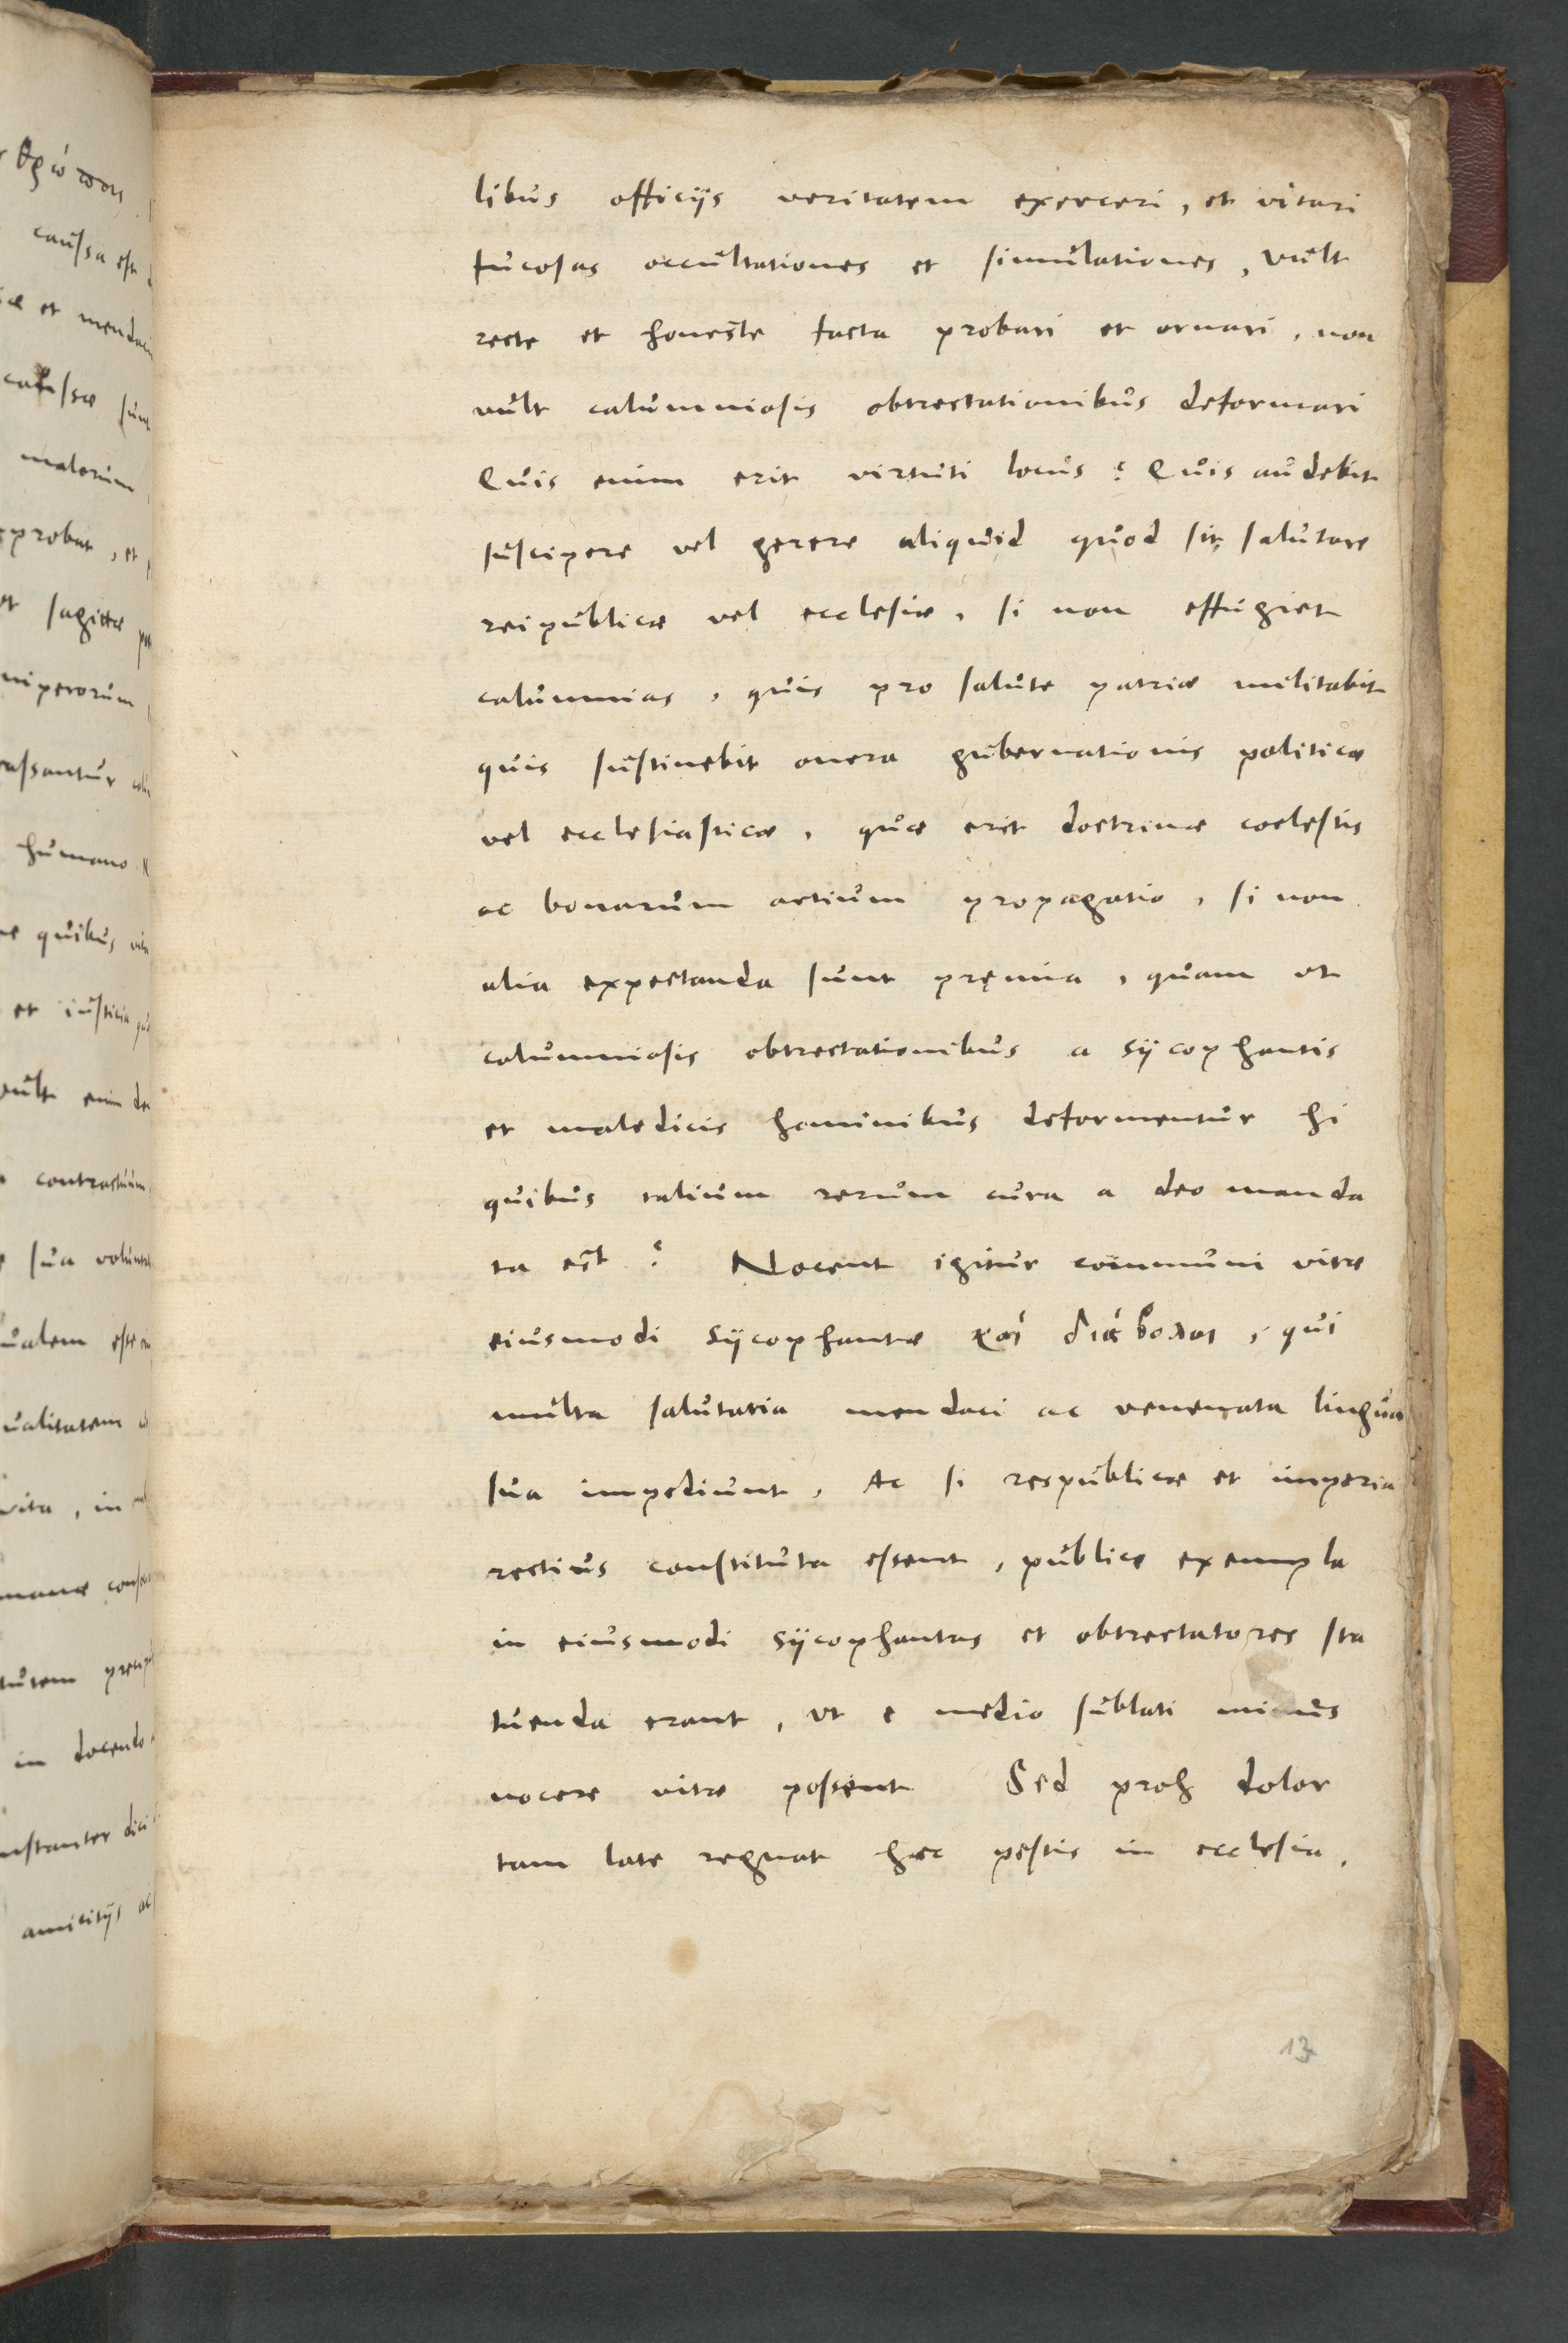 libus officijs veritatem exerceri, et vitari
fucosas occultationes et simulationes, vult
recte et honeste facta probari et ornari, non
vult calumniosis obtrectationibus deformari
Quis enim erit virtuti locus? Quis audebit
suscipere vel gerere aliquid quod sit salutare
reipublicæ vel ecclesiæ, si non effugiet
calumnias, quis pro salute patriæ militabit
quis sustinebit onera gubernationis politicæ
vel ecclesiasticæ, quæ erit doctrinæ coelestis
ac bonarum artium propagatio, si non
alia expectanda sunt pręmia, quam ut
calumniosis obtrectationibus a sycophantis
et maledicis hominibus deformentur hi
quibus talium rerum cura a deo manda
ta est? Nocent igitur communi vitæ
eiusmodi sycophantæ καὶ διάβολοι, qui
multa salutaria mendaci ac venenata lingua
sua impediunt, Ac si respublicæ et imperia
rectius constituta essent, publice exempla
in eiusmodi sycophantas et obtrectatores sta
tuenda erant, ut e medio sublati minus
nocere vitæ possent Sed proh dolor
tam late regnat hæc pestis in ecclesia,
13
causa est
et
sagittæ
humano
quibus
et iusticia
vult enim
sua
in docendo
amicitijs ac